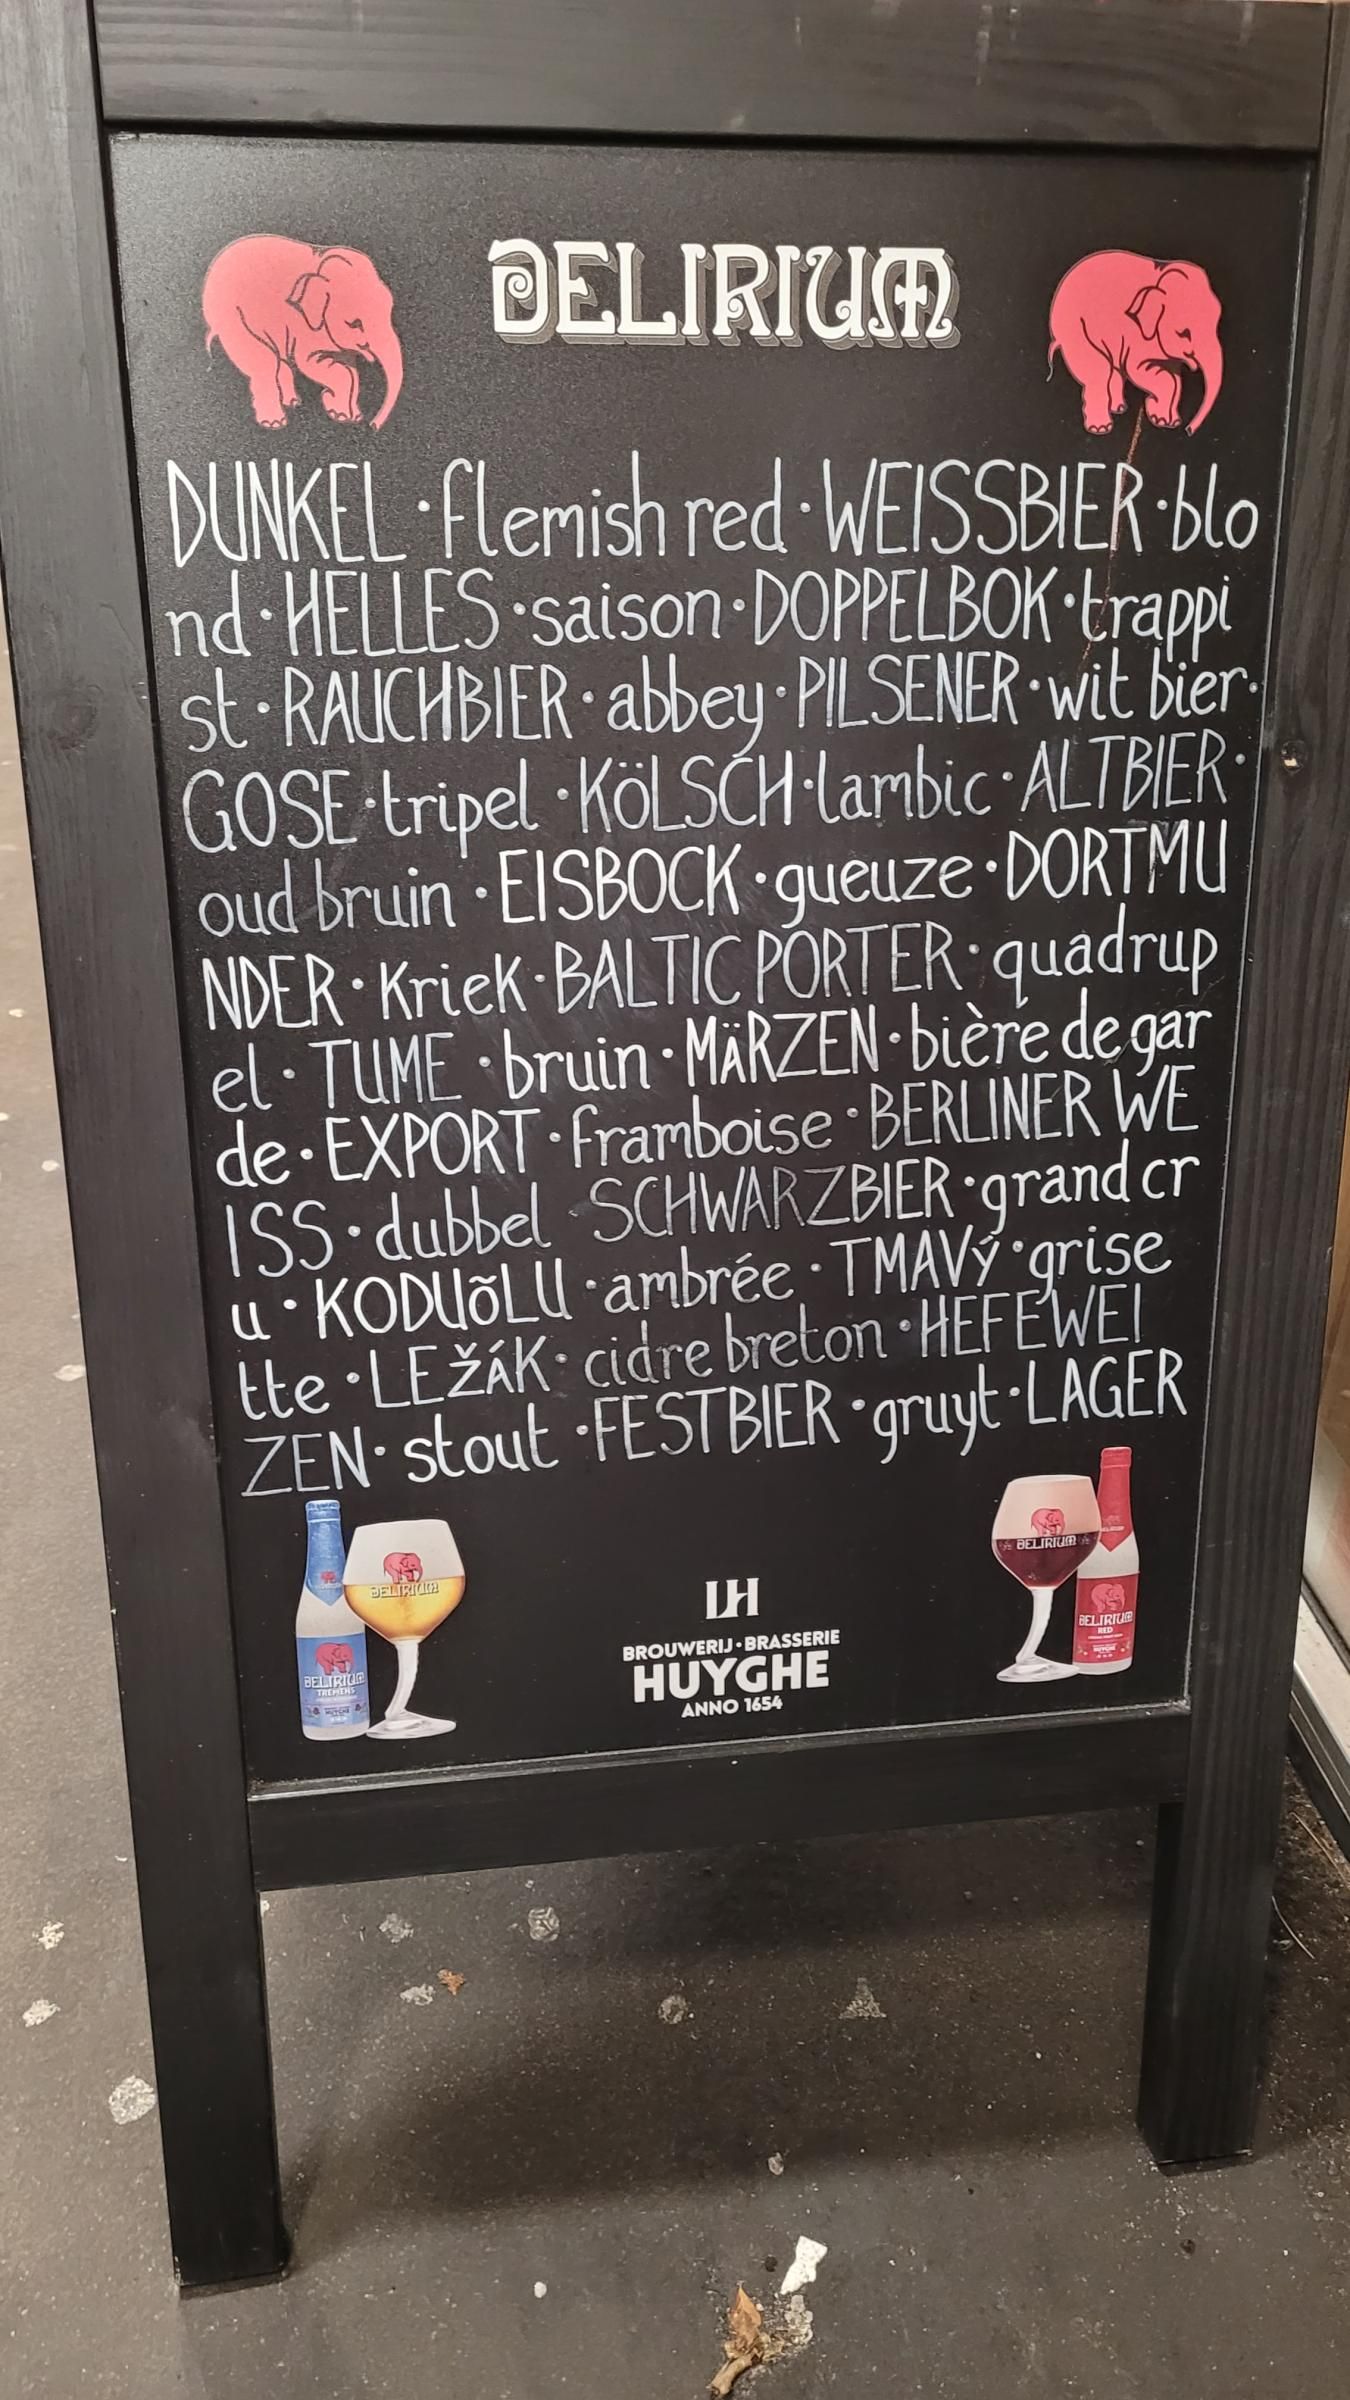 DELIRIUM
DUNKEL · flemish red · WEISSBIER · blo
nd · HELLES · saison · DOPPELBOK · trappi
st · RAUCHBIER · abbey · PILSENER · wit bier ·
GOSE · tripel · KÖLSCH · lambic · ALTBIER ·
oud bruin · EISBOCK · gueuze · DORTMU
NDER · Kriek · BALTIC PORTER · quadrup
el · TUME · bruin · MÄRZEN · bière de gar
de · EXPORT · framboise · BERLINER WE
ISS · dubbel · SCHWARZBIER · grand cr
u · KODUõLU · ambrée · TMAVý · grise
tte · LEŽÁK · cidre breton · HEFEWEI
ZEN · stout · FESTBIER · gruyt · LAGER
DELIRIUM
DELIRIUM
TREMENS
HUYGHE
DELIRIUM
DELIRIUM
RED
HUYGHE
LH
BROUWERIJ · BRASSERIE
HUYGHE
ANNO 1654